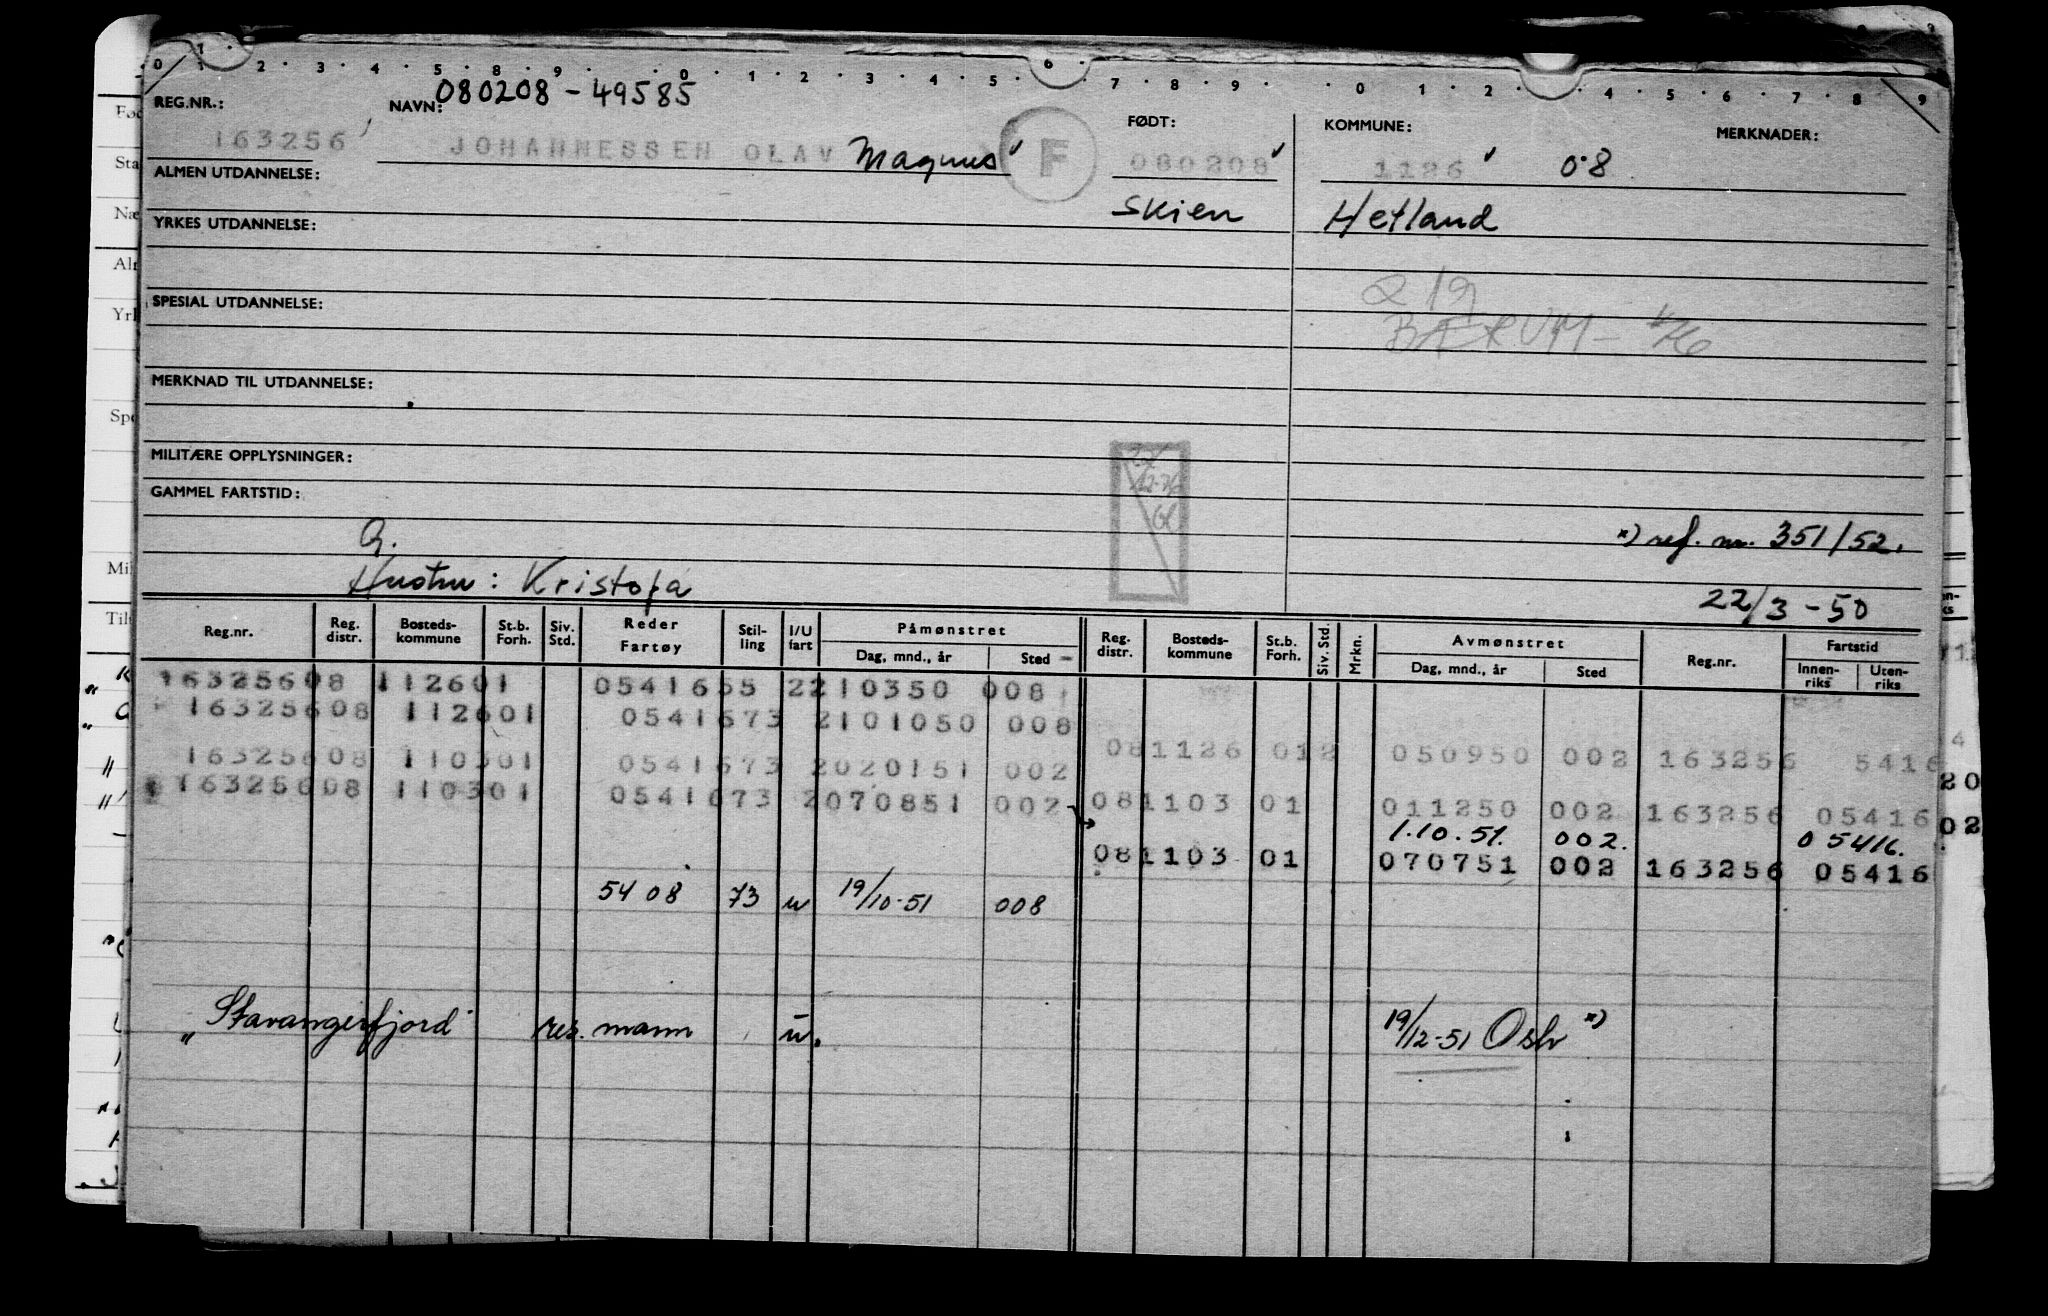 0 1 2 3 4 5 8 9 0 1 2 3 4 5 6 7 8 9 0 1 2 4 5 6 7 8 9
080208 - 49585
REG.NR.: NAVN: FØDT: KOMMUNE: MERKNADER:
163256 JOHANNESSEN OLAV Magnus F 080208 1126 08
ALMEN UTDANNELSE:
Skien Hetland
YRKES UTDANNELSE:
219
SPESIAL UTDANNELSE:
BÆRUM
MERKNAD TIL UTDANNELSE:
MILITÆRE OPPLYSNINGER:
GAMMEL FARTSTID:
G. *) ref. nr. 351/52.
Hustru: Kristofa 22/3 - 50
Reg.nr. Reg. distr. Bosteds-kommune St.b. Forh. Siv. Std. Reder Fartøy Stil-ling I/U fart Påmønstret Dag, mnd., år Sted Reg. distr. Bosteds-kommune St.b. Forh. Siv. Std. Mrkn. Avmønstret Dag, mnd., år Sted Reg.nr. Fartstid Innen-riks Uten-riks
16325608 112601 0541655 2210350 008
16325608 112601 0541673 2101050 008
081126 012 050950 002 163256 5416
16325608 110301 0541673 2020151 002
16325608 110301 0541673 2070851 002
081103 01 011250 002 163256 05416
1.10.51. 002. 05416.
081103 01 070751 002 163256 05416
5408 73 u 19/10-51 008
"Stavangerfjord" res. mann u. 19/12-51 Oslo *)